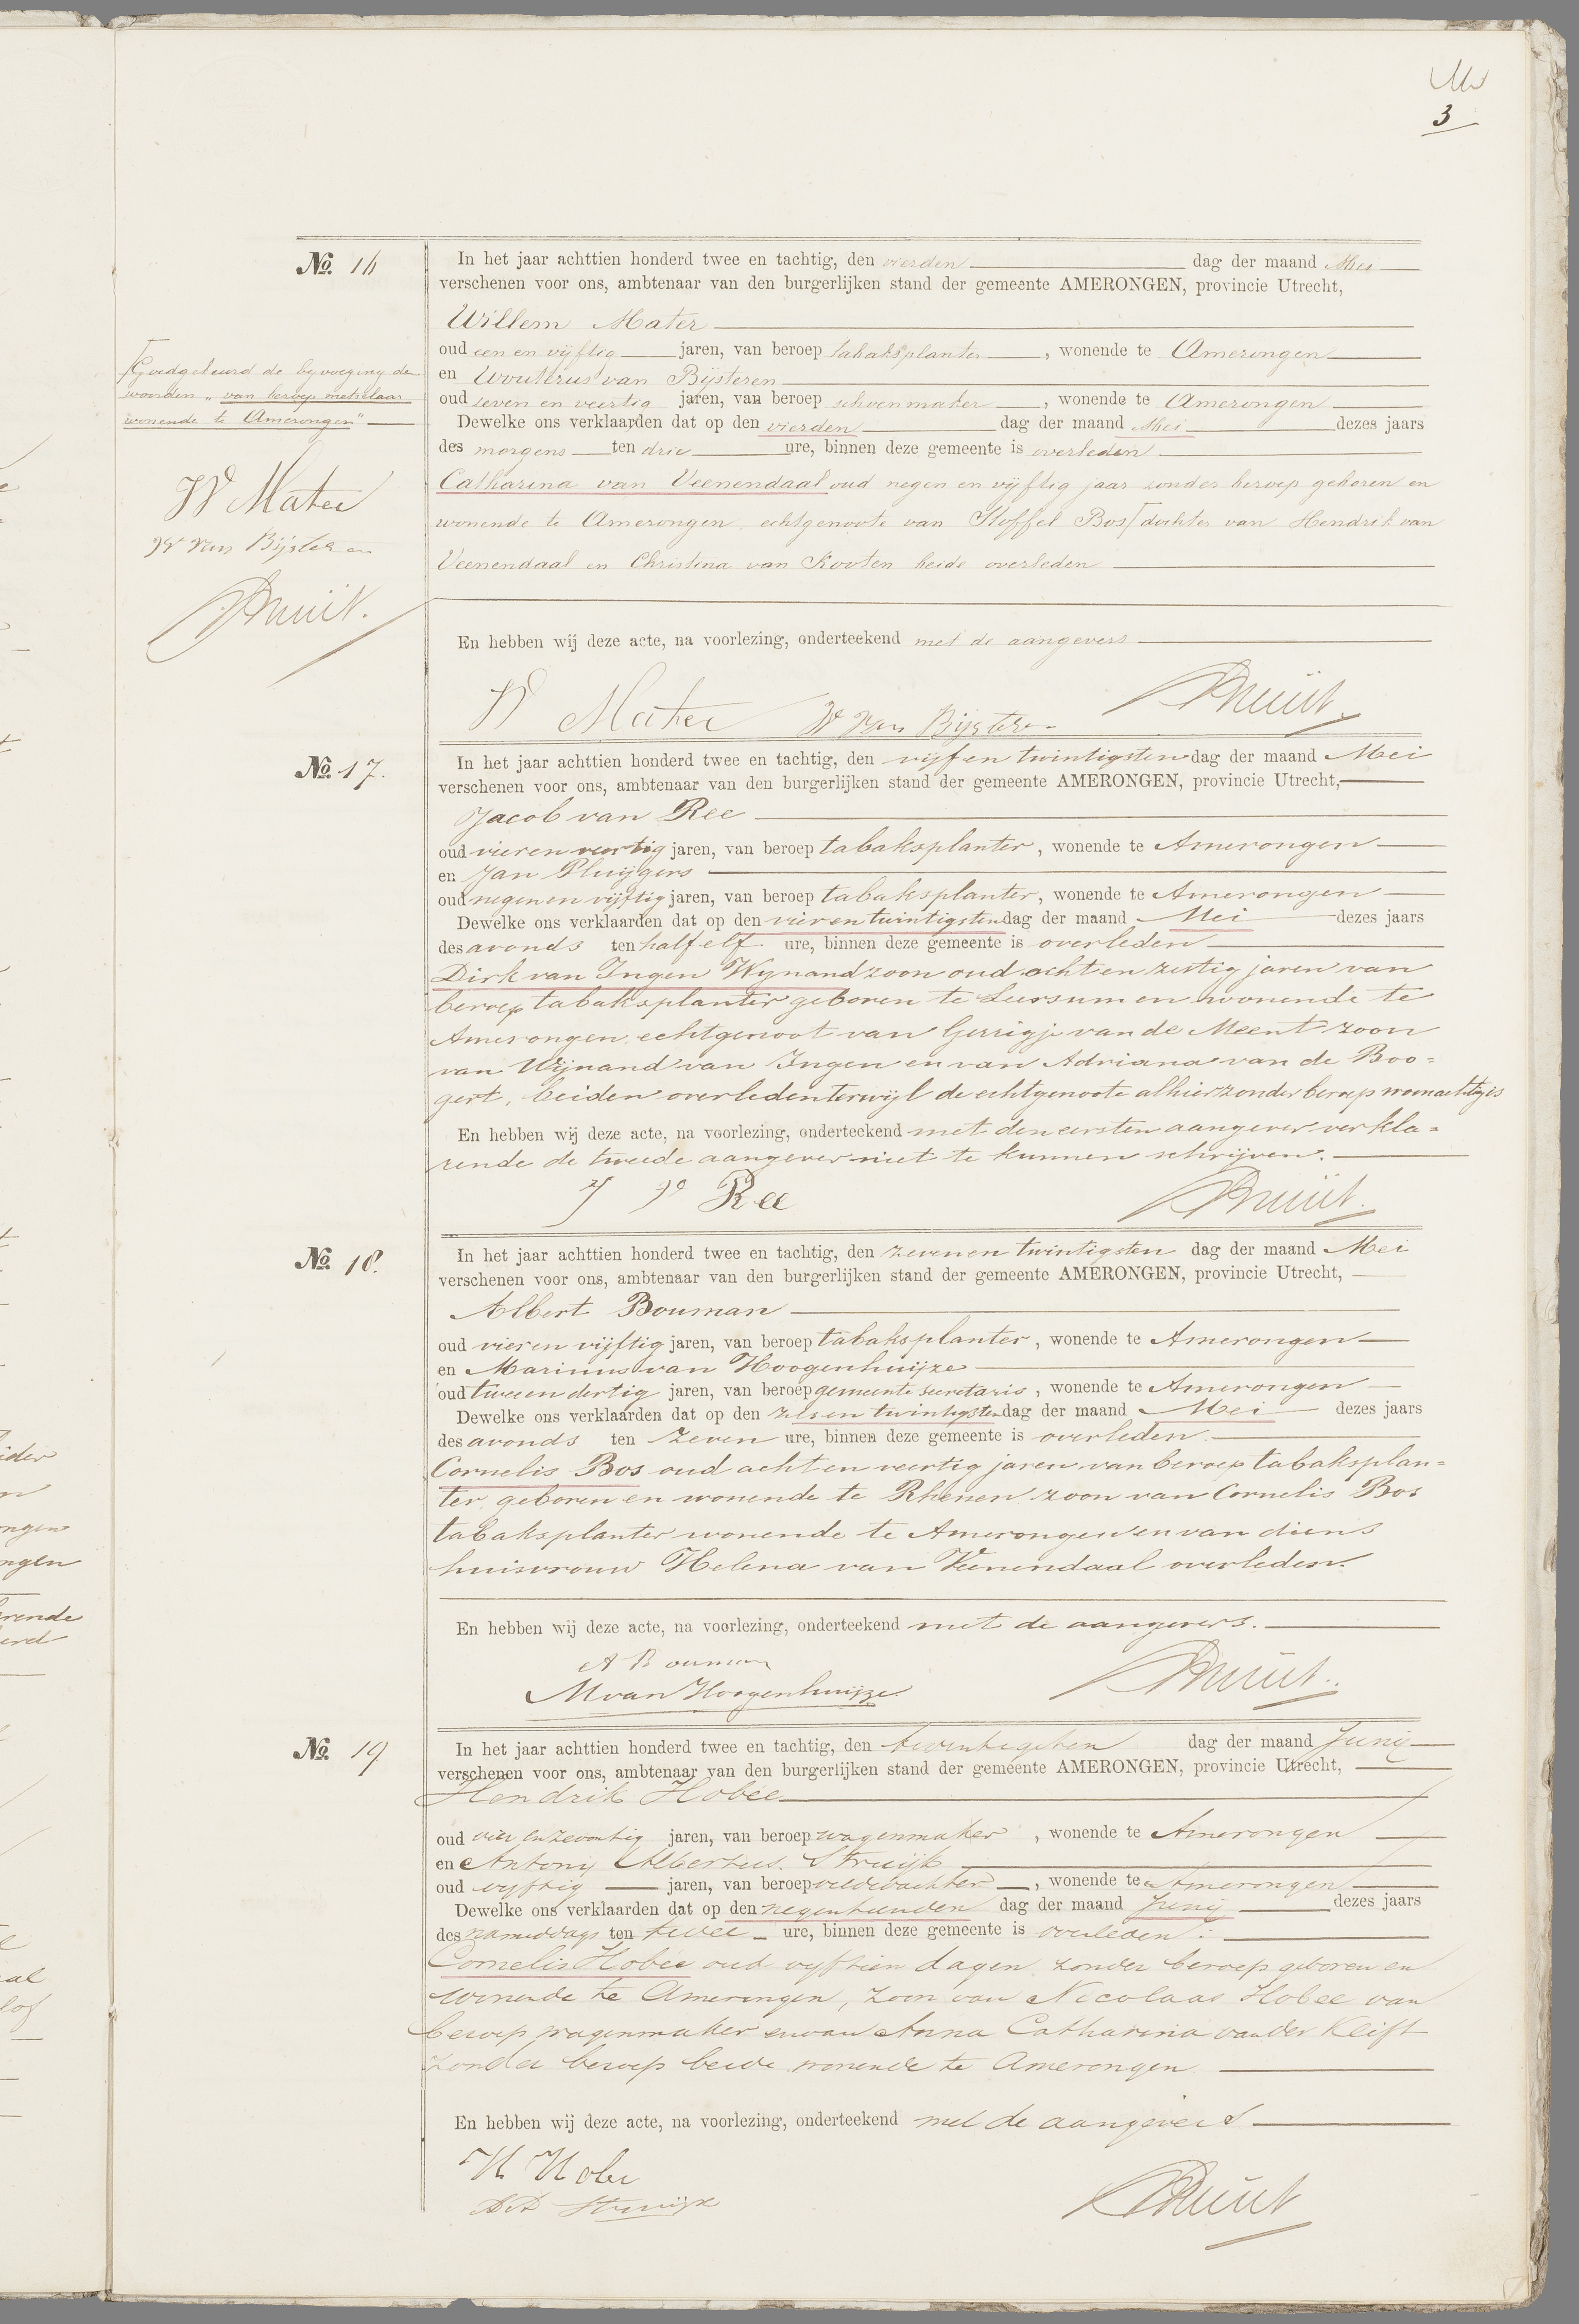 3
No. 16
In het jaar achttien honderd twee en tachtig, den vierden dag der maand Mei
verschenen voor ons, ambtenaar van den burgerlijken stand der gemeente AMERONGEN, provincie Utrecht,
Willem Mater
oud een en vijftig jaren, van beroep tabaksplanter, wonende te Amerongen
en Wouterus van Bijsteren
oud zeven en veertig jaren, van beroep schoenmaker, wonende te Amerongen
Dewelke ons verklaarden dat op den vierden dag der maand Mei dezes jaars
des morgens ten drie ure, binnen deze gemeente is overleden
Catharina van Veenendaal oud negen en vijftig jaar zonder beroep geboren en
wonende te Amerongen echtgenoote van Stoffel Bos [ dochter van Hendrik van
Veenendaal en Christina van Kooten beide overleden
En hebben wij deze acte, na voorlezing, onderteekend met de aangevers
W Mater W van Bijsteren
[Goedgekeurd de byvoeging der
woorden „van beroep metselaar
wonende te Amerongen"
W Mater
W van Bijsteren
No. 17.
In het jaar achttien honderd twee en tachtig, den vijfen twintigsten dag der maand Mei
verschenen voor ons, ambtenaar van den burgerlijken stand der gemeente AMERONGEN, provincie Utrecht,
Jacob van Ree
oud vieren veertig jaren, van beroep tabaksplanter, wonende te Amerongen
en Jan Pluijgers
oud negenen vijftig jaren, van beroep tabaksplanter, wonende te Amerongen
Dewelke ons verklaarden dat op den vieren twintigsten dag der maand Mei dezes jaars
des avonds ten half elf ure, binnen deze gemeente is overleden
Dirk van Ingen Wynandzoon oud acht en zestig jaren van
beroep tabaksplanter geboren te Leersum en wonende te
Amerongen echtgenoot van Gerrigje van de Meent zoon
van Wijnand van Ingen en van Adriana van de Boo=
gert, beiden overleden terwijl de echtgenoote alhier zonder beroep woonachtig is
En hebben wij deze acte, na voorlezing, onderteekend met den eersten aangever verkla=
rende de tweede aangever niet te kunnen schrijven.
J v Ree
No. 18.
In het jaar achttien honderd twee en tachtig, den zevenen twintigsten dag der maand Mei
verschenen voor ons, ambtenaar van den burgerlijken stand der gemeente AMERONGEN, provincie Utrecht,
Albert Bouman
oud vieren vijftig jaren, van beroep tabaksplanter, wonende te Amerongen
en Marinus van Hoogenhuijze
oud tweeen dertig jaren, van beroep gemeente secretaris, wonende te Amerongen
Dewelke ons verklaarden dat op den zesen twintigsten dag der maand Mei dezes jaars
des avonds ten zeven ure, binnen deze gemeente is overleden.
Cornelis Bos oud achten veertig jaren van beroep tabaksplan=
ter, geboren en wonende te Rhenen zoon van Cornelis Bos
tabaksplanter wonende te Amerongen en van diens
huisvrouw Helena van Veenendaal overleden.
En hebben wij deze acte, na voorlezing, onderteekend met de aangevers.
A Bouman
M van Hoogenhuijze.
No. 19
In het jaar achttien honderd twee en tachtig, den twintigsten dag der maand Junij
verschenen voor ons, ambtenaar van den burgerlijken stand der gemeente AMERONGEN, provincie Utrecht,
Hendrik Hobee
oud vier en zeventig jaren, van beroep wagenmaker, wonende te Amerongen
en Antonij Albertus Struijk
oud vyftig jaren, van beroep veldwachter, wonende te Amerongen
Dewelke ons verklaarden dat op den negentienden dag der maand Junij dezes jaars
des namiddags ten twee ure, binnen deze gemeente is overleden:
Cornelis Hobee oud vyftien dagen zonder beroep geboren en
wonende te Amerongen, zoon van Nicolaas Hobee van
beroep wagenmaker en van Anna Catharina van der Kleift
zonder beroep beide wonende te Amerongen
En hebben wij deze acte, na voorlezing, onderteekend met de aangevers
H Hobee
AA Struijk